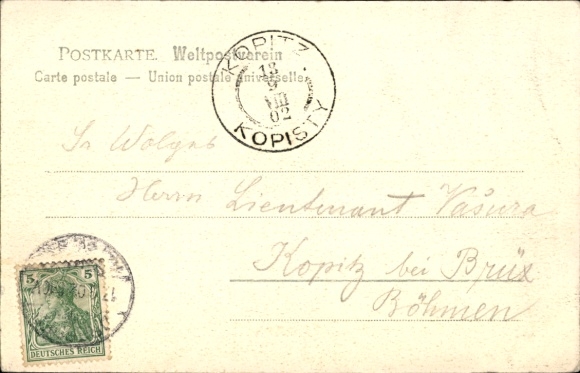 POSTKARTE. Weltpostverein
Carte postale — Union postale universelle
KOPITZ
18
9
VIII
02
KOPISTY
Herrn Lieutenant Vašura
Kopitz bei Brüx
Böhmen
5 5
DEUTSCHES REICH